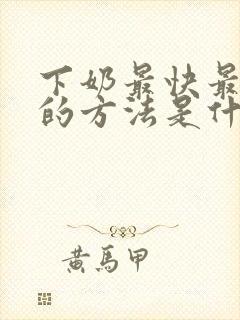 下奶最快最
的方法是什
黄馬甲